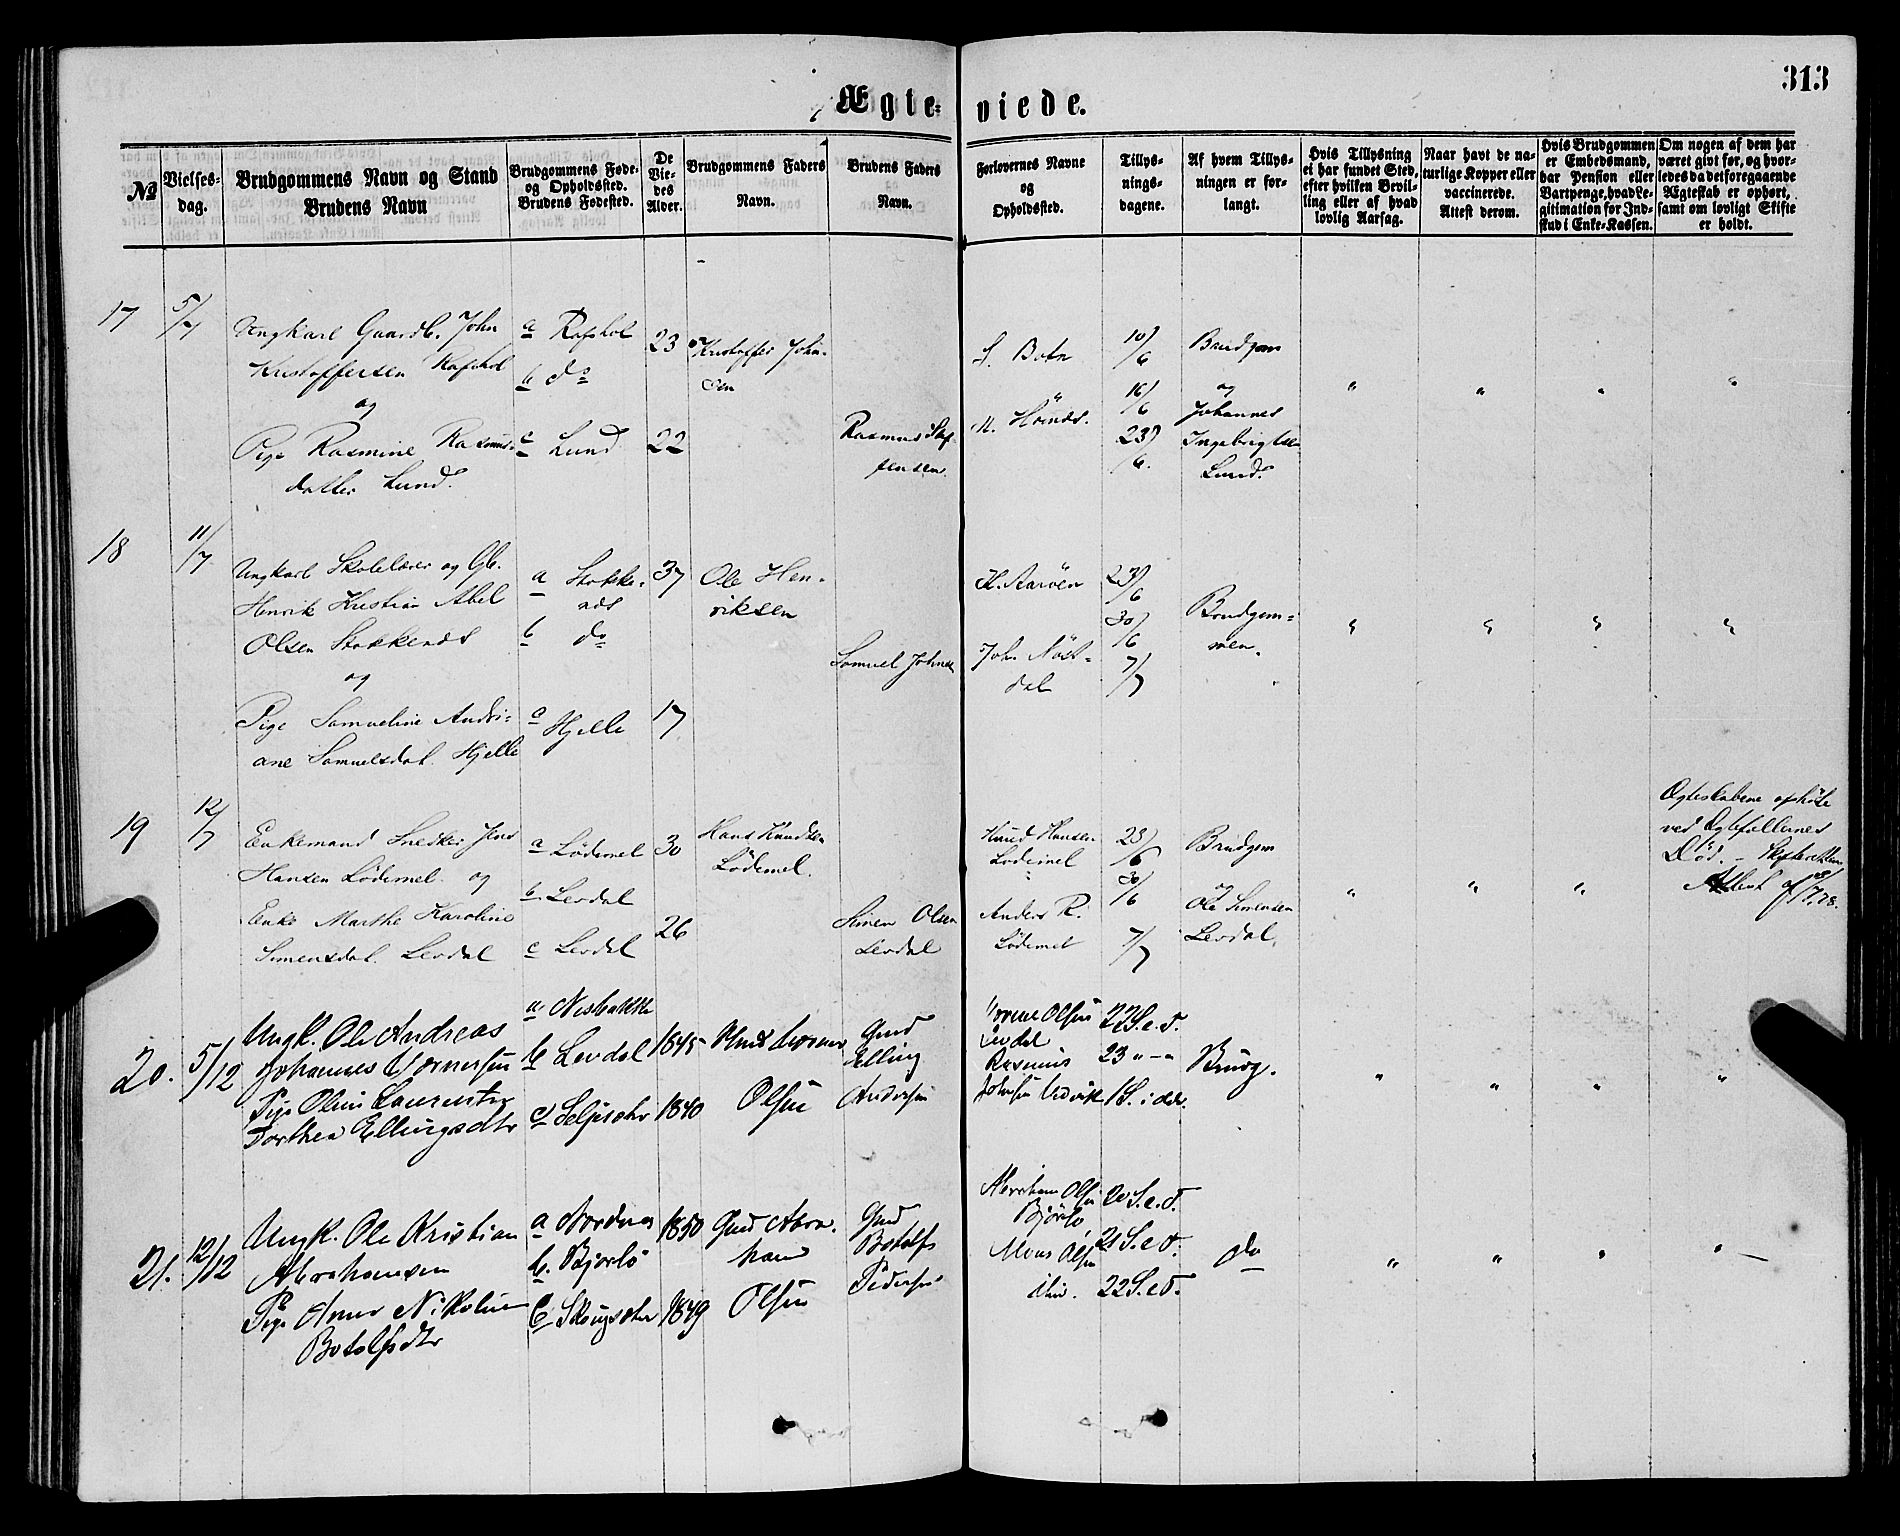 313
Ægte-viede.
№
Vielses-
dag.
Brudgommens Navn og Stand
Brudens Navn
Brudgommens Føde-
og Opholdssted.
Brudens Fødested.
De
Vie-
des
Alder.
Brudgommens Faders
Navn.
Brudens Faders
Navn.
Forlovernes Navne
og
Opholdssted.
Tillys-
nings-
dagene.
Af hvem Tillys-
ningen er for-
langt.
Hvis Tillysning
ei har fundet Sted,
efter hvilken Bevil-
ling eller af hvad
lovlig Aarsag.
Naar havt de na-
turlige Kopper eller
vaccinerede.
Attest derom.
Hvis Brudgommen
er Embedsmand,
har Pension eller
Vartpenge, hvad Le-
gitimation for Ind-
skud i Enke-Kassen.
Om nogen af dem har
været givt før, og hvor-
ledes da det foregaaende
Ægteskab er ophørt,
samt om lovligt Skifte
er holdt.
17
5/7
Ungkarl Gaardb. John
Kristoffersen
og
Pige Rasmine Rasmus-
datter Lund.
a
b do
c Lund
23
22
Kristoffer John-
sen
Rasmus
S. Botn
M.
10/6
16/6
23/6.
Brudgom
og
Johannes
Ingebrigtsen
Lund.
" " " "
18
11/7
Ungkarl Skolelærer og Gb.
Henrik Kristian Abel
Olsen
og
Pige Samueline Andri-
ane Samuelsdat. Hjelle
a
b do
c Hjelle
37
17
Ole Hen-
riksen
Samuel Johnsen
H. Aarøen
John Nøst-
dal
23/6
30/6
7/7
Brudgom-
men.
" " " "
19
12/7
Enkemand Snedker Jens
Hansen Lødemel og
Enke Marthe Karoline
Simensdat. Levdal
a Lødemel
b Levdal
c Levdal
30
26
Hans Knudsen
Lødemel.
Simen Olsen
Levdal
Knud Hansen
Lødemel
Anders R.
Lødemel
23/6
30/6
7/7
Brudgom
og
Ole Simensen
Levdal.
" " "
Ægteskabene ophørte
ved Ægtefællernes
Død.
20.
5/12
Ungk. Ole Andreas
Johannes
Pige Oline
Dorthea Ellingsdtr
a
b Levdal
c
1845
1840
Olsen
Gmd
Elling
Andersen
Olsen
Levdal
Rasmus
22 S. e. T.
23 " — "
1 S. i
Brudg.
" " " "
21.
12/12
Ungk. Ole Kristian
Abrahamsen
Pige Anne Nikoline
Botolfsdtr
a Nordnes
b. Bjørlo
c
1850
1849
Gmd Abra-
ham
Olsen
Gmd
Botolf
Pedersen
Abraham Olsen
Bjørlo
Mons Olsen
20 S. e. T.
21 S. e. T.
22 S. e. T.
do
" " " " —